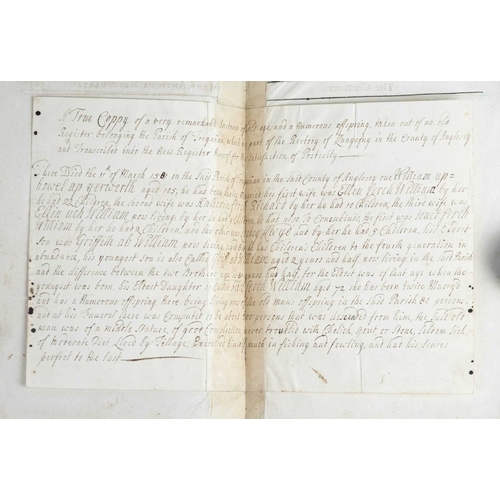 A True Coppy of a very remarkable Instance of old age, and a Numerous offspring, taken out of an old
Register belonging the Parish of Tregaian, which is part of the Rectory of Llangefny in the County of Anglesey
and Transcrib'd into the New Register there for the Satisfaction of Posterity
There Died the 11th of March 1581 in the Said Parish of Tregaian in the Said County of Anglesey one William ap=
howel ap yerwerth aged 105, he had been his first wife was Ellen ferch William by her
he had 22 Children, the Second wife was Katherine ferch Richard by her he had 10 Children, the third wife was
Ellen uch William now living, by her he had 4 Children, he had also 2 Concubines, the first was Jonet ferch
William by her he had 2 Children, and the other was Lloyd and by her he had 5 Children, his Eldest
Son was Griffith ap William now living and hath Children, Children to the fourth generation in
abundance, his youngest Son is also Called Griffith ap William aged 2 years and half now living in the Said Parish
and the difference between the two Brothers is years and half, for the Elder was of that age when the
youngest was born, his Eldest Daughter is called ferch William aged 72 She has been twice Married
and has a Numerous offspring, there being living of the old Mans offspring in the Said Parish 80 persons,
and at his Funeral there was Computed to be about persons that was descended from him, the Said old
man was of a middle Stature, of good Complexion, never troubled with Cholick, gout or Stone, Seldom Sick,
of moderate Diet, Lived by Tillage, Exercised himself much in fishing and fowling, and had his Senses
perfect to the last